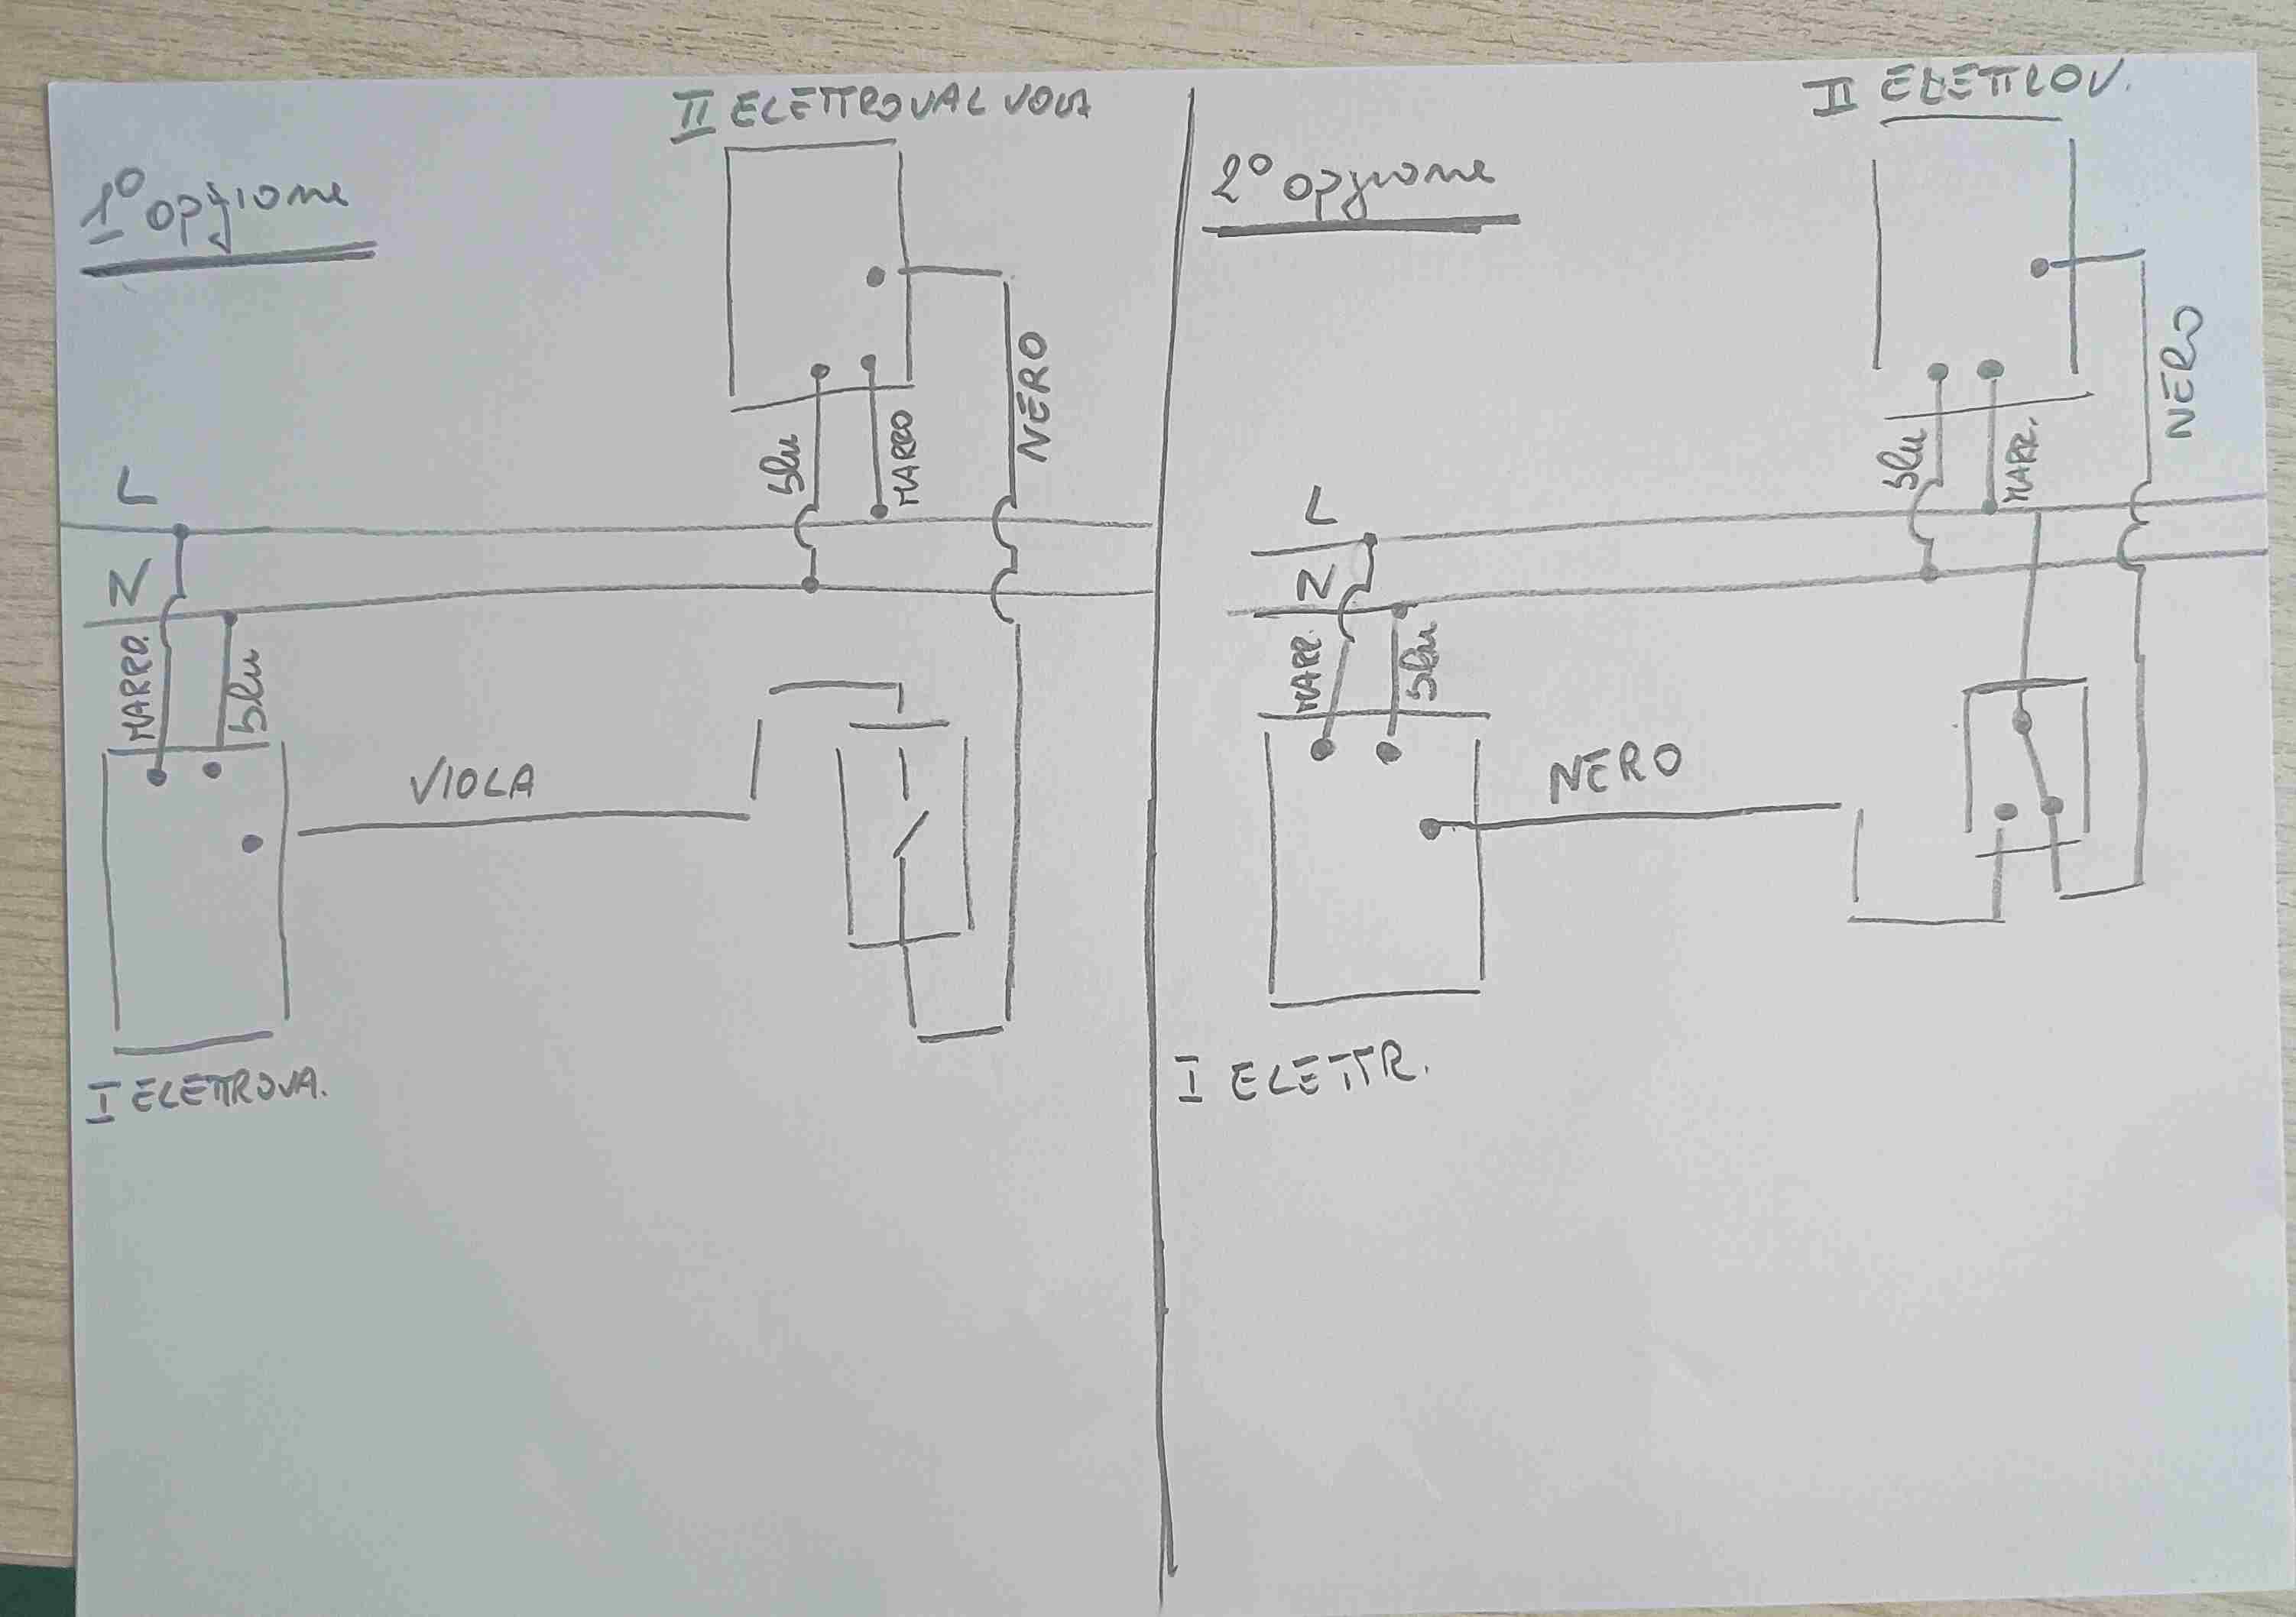 II ELETTROVALVOLA
1° opzione
NERO
blu
MARRO
L
N
MARRO.
blu
VIOLA
I ELETTROVA.
II ELETTROV.
2° opzione
NERO
blu
MARR.
L
N
MARR.
blu
NERO
I ELETTR.